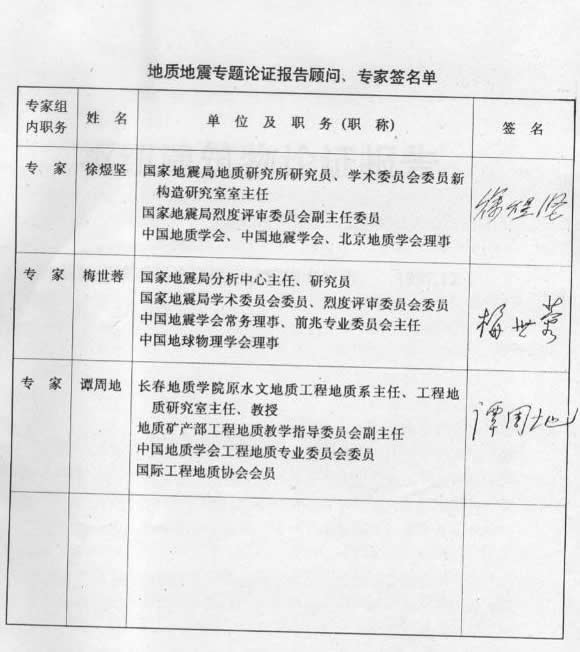 地质地震专题论证报告顾问、专家签名单
专家组内职务 姓 名 单 位 及 职 务（职 称） 签 名
专 家 徐煜坚 国家地震局地质研究所研究员、学术委员会委员新
构造研究室室主任
国家地震局烈度评审委员会副主任委员
中国地质学会、中国地震学会、北京地质学会理事
徐煜坚
专 家 梅世蓉 国家地震局分析中心主任、研究员
国家地震局学术委员会委员、烈度评审委员会委员
中国地震学会常务理事、前兆专业委员会主任
中国地球物理学会理事
梅世蓉
专 家 谭周地 长春地质学院原水文地质工程地质系主任、工程地
质研究室主任、教授
地质矿产部工程地质教学指导委员会副主任
中国地质学会工程地质专业委员会委员
国际工程地质协会会员
谭周地